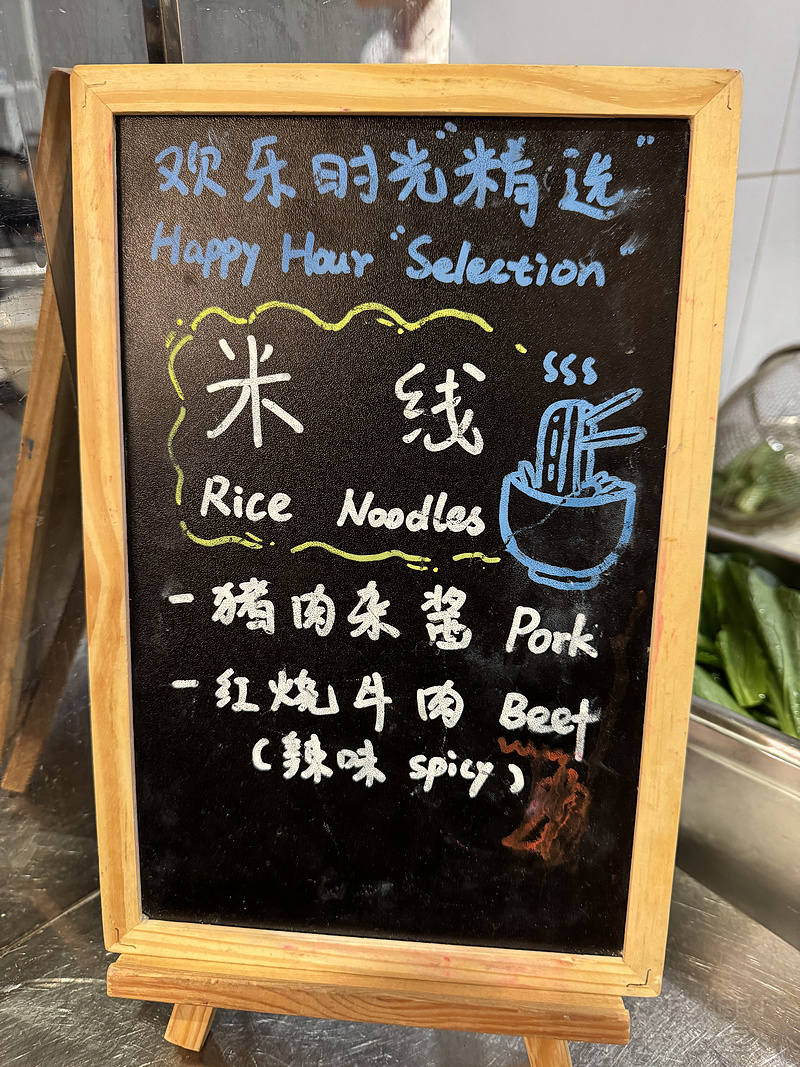 欢乐时光"精选"
Happy Hour "Selection"
sss
米 线
Rice Noodles
- 猪肉杂酱 Pork
- 红烧牛肉 Beef
(辣味 spicy)